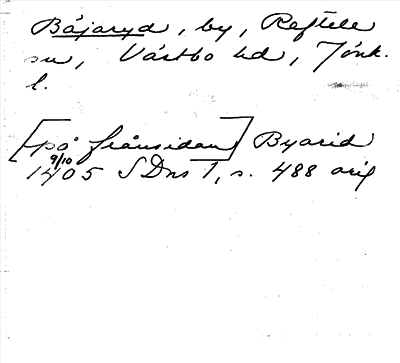 Båjaryd, by, Reftele
sn, Västbo hd, Jönk.
l.
[på frånsidan] Byarid
9/10
1405 SDns 1, s. 488 orig